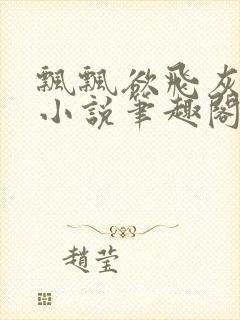 飄飄欲飛灰
小說筆趣閣
趙瑩